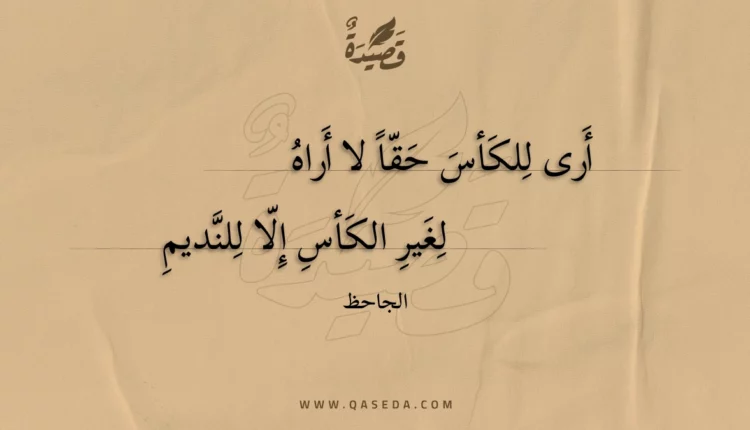 قَصِيدَةٌ
أَرى لِلكَأسَ حَقّاً لا أَراهُ
لِغَيرِ الكَأسِ إِلّا لِلنَّديمِ
الجاحظ
WWW.QASEDA.COM